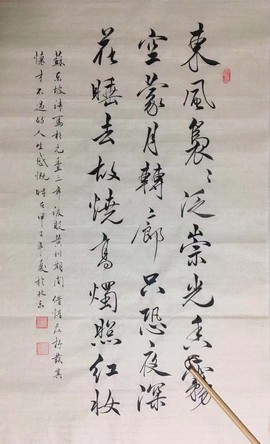 東風裊々泛崇光香霧
空蒙月轉廊只恐夜深
花睡去故燒高燭照紅妝
蘇東坡詩寫於元豊三年被貶黃州期間借惜花抒發其
懷才不遇的人生感慨 時在甲午年之夏於北京